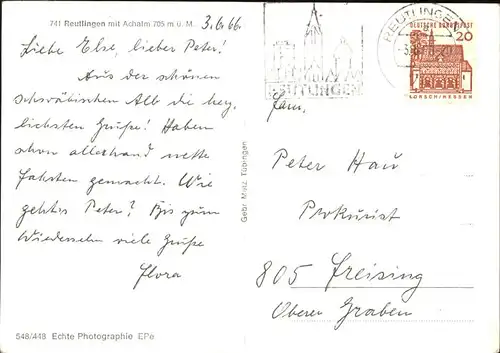 741 Reutlingen mit Achalm 705 m ü. M.
3.6.66.
Liebe Else, lieber Peter!
Aus der schönen
schwäbischen Alb die herz-
lichsten Grüße! Haben
schon allerhand nette
Fahrten gemacht. Wie
gehts Peter? Bis zum
Wiedersehn viele Grüße
Flora
548/448 Echte Photographie EPe
Gebr. Metz, Tübingen
REUTLINGEN
REUTLINGEN
DEUTSCHE BUNDESPOST
20
LORSCH/HESSEN
Fam.
Peter Hau
Prokurist
805 Freising
Oberer Graben